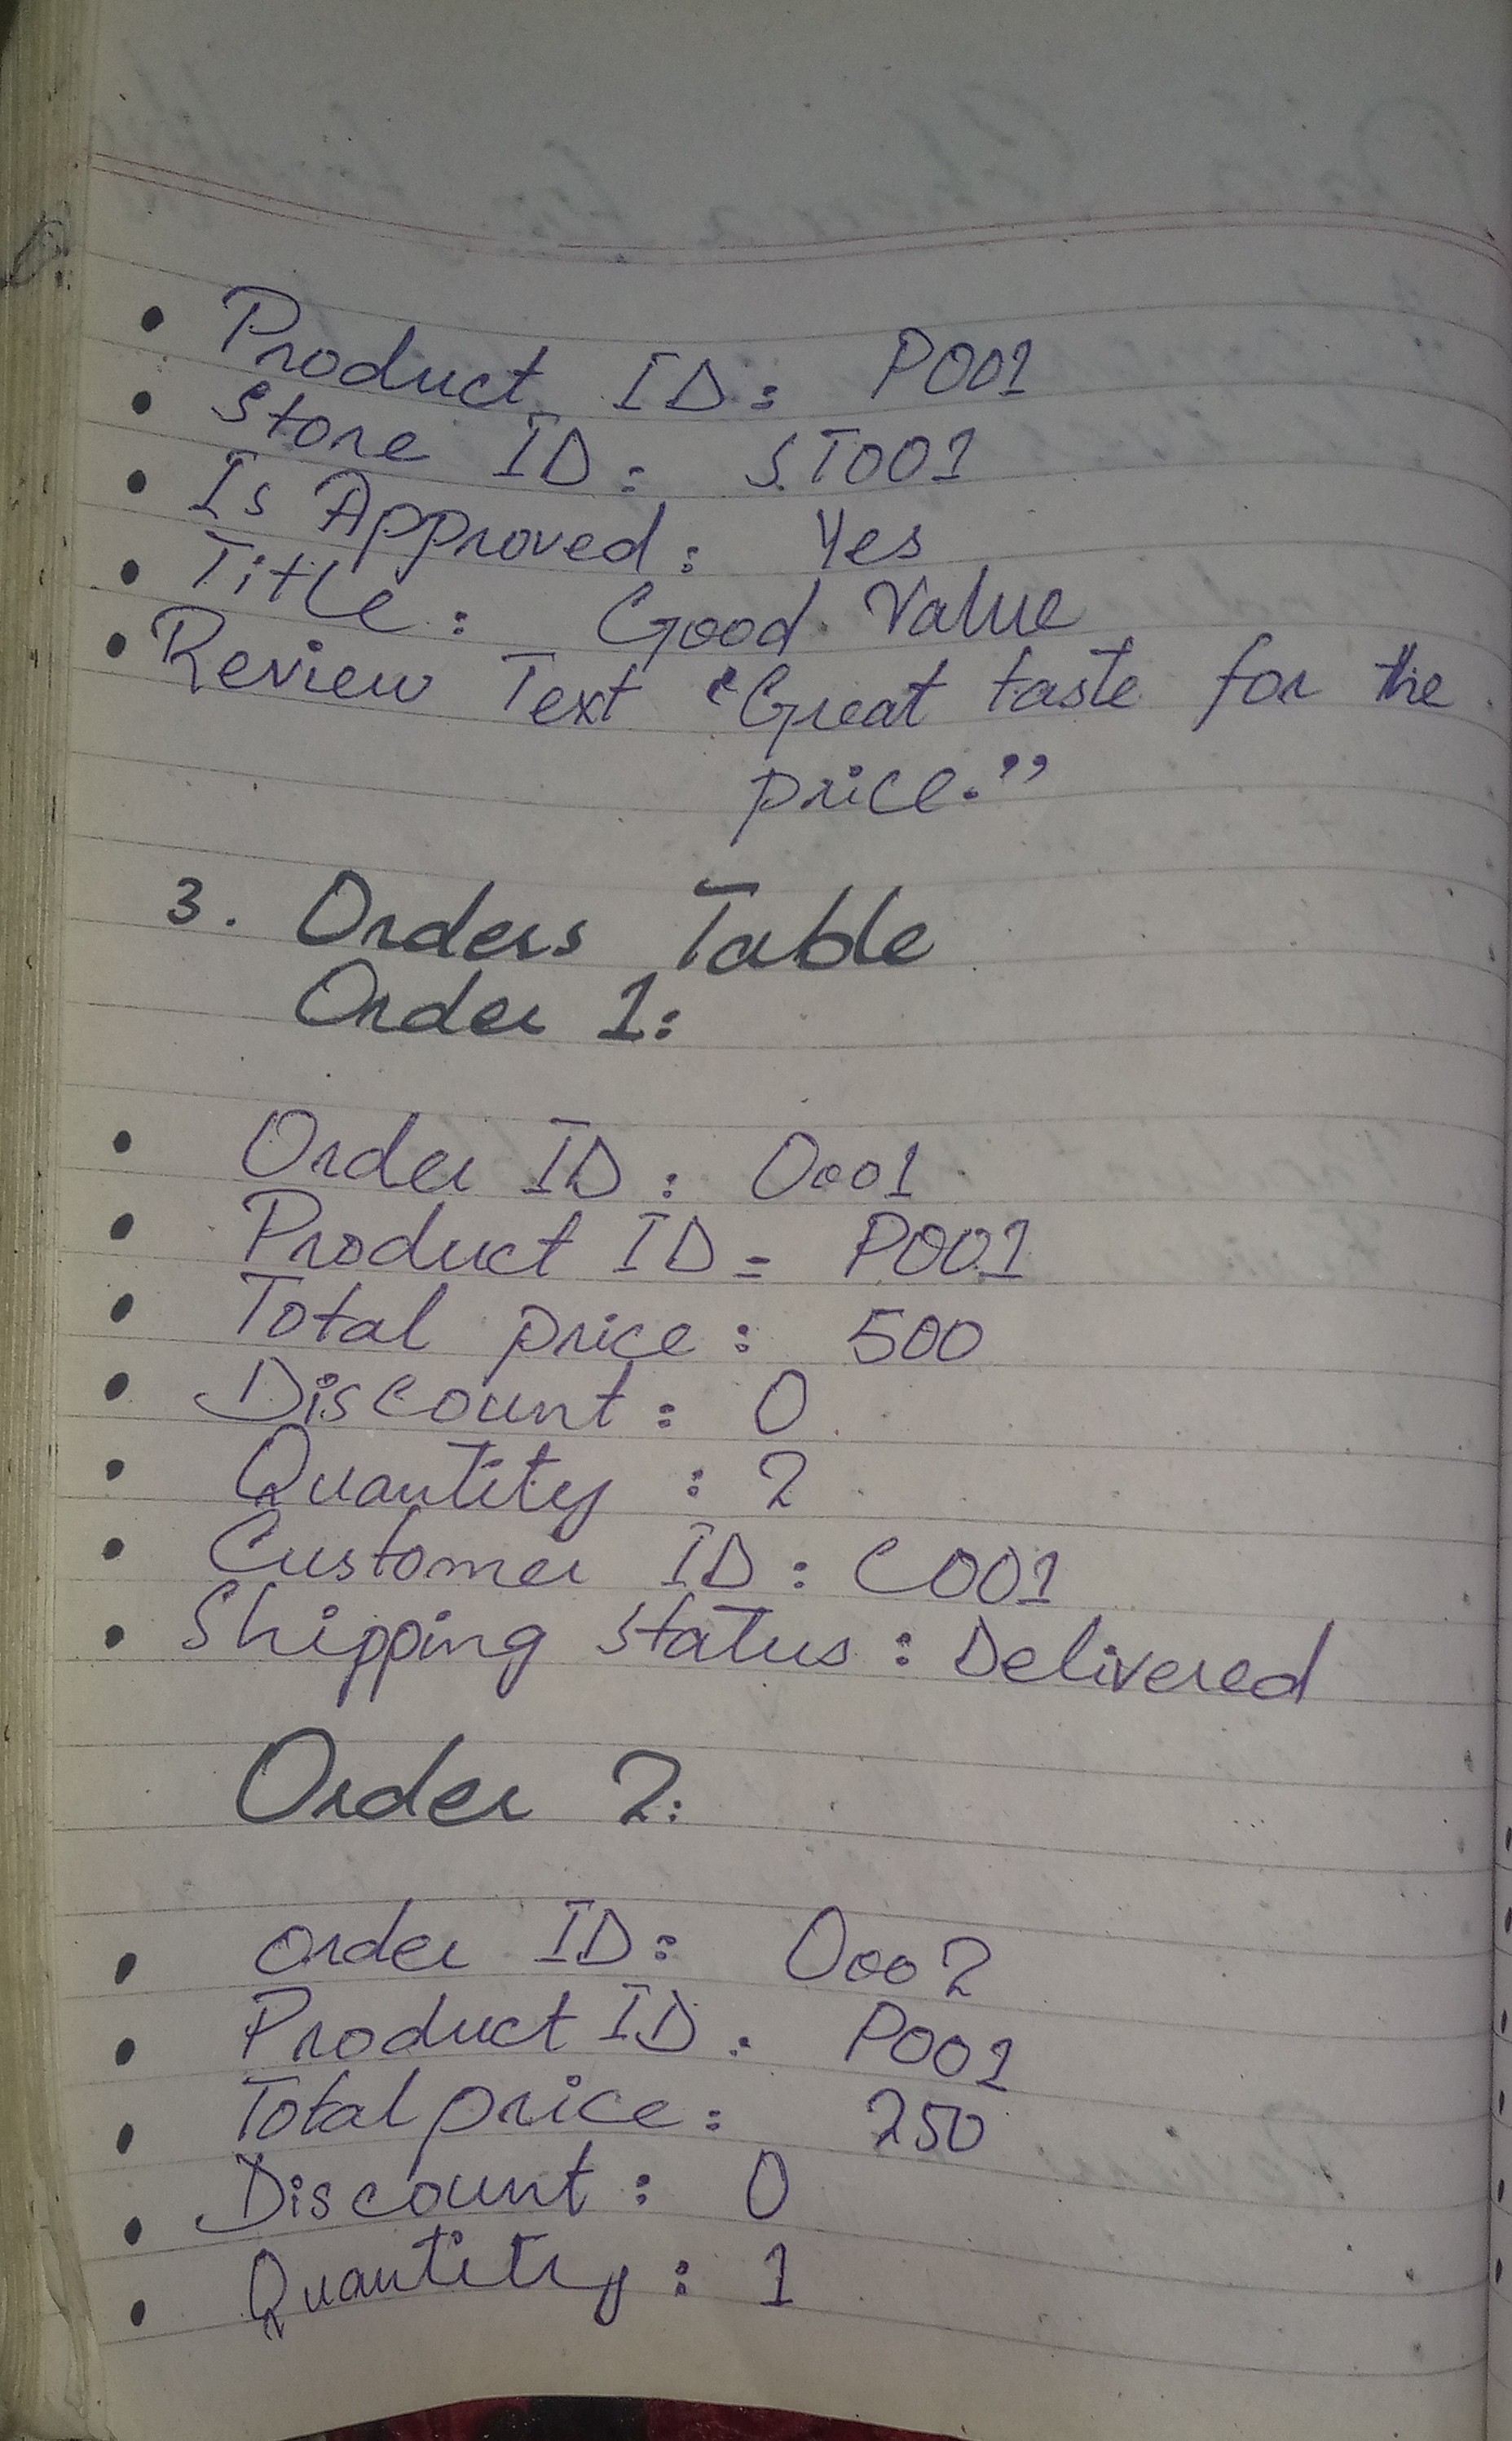 • Product ID: P001
• Store ID: ST001
• Is Approved: Yes
• Title: Good Value
• Review Text "Great taste for the
price."
3. Orders Table
Order 1:
• Order ID: O001
• Product ID= P001
• Total price: 500
• Discount: 0
• Quantity: 2
• Customer ID: C001
• Shipping Status: Delivered
Order 2:
• order ID: O002
• Product ID. P001
• Total price: 250
• Discount: 0
• Quantity: 1